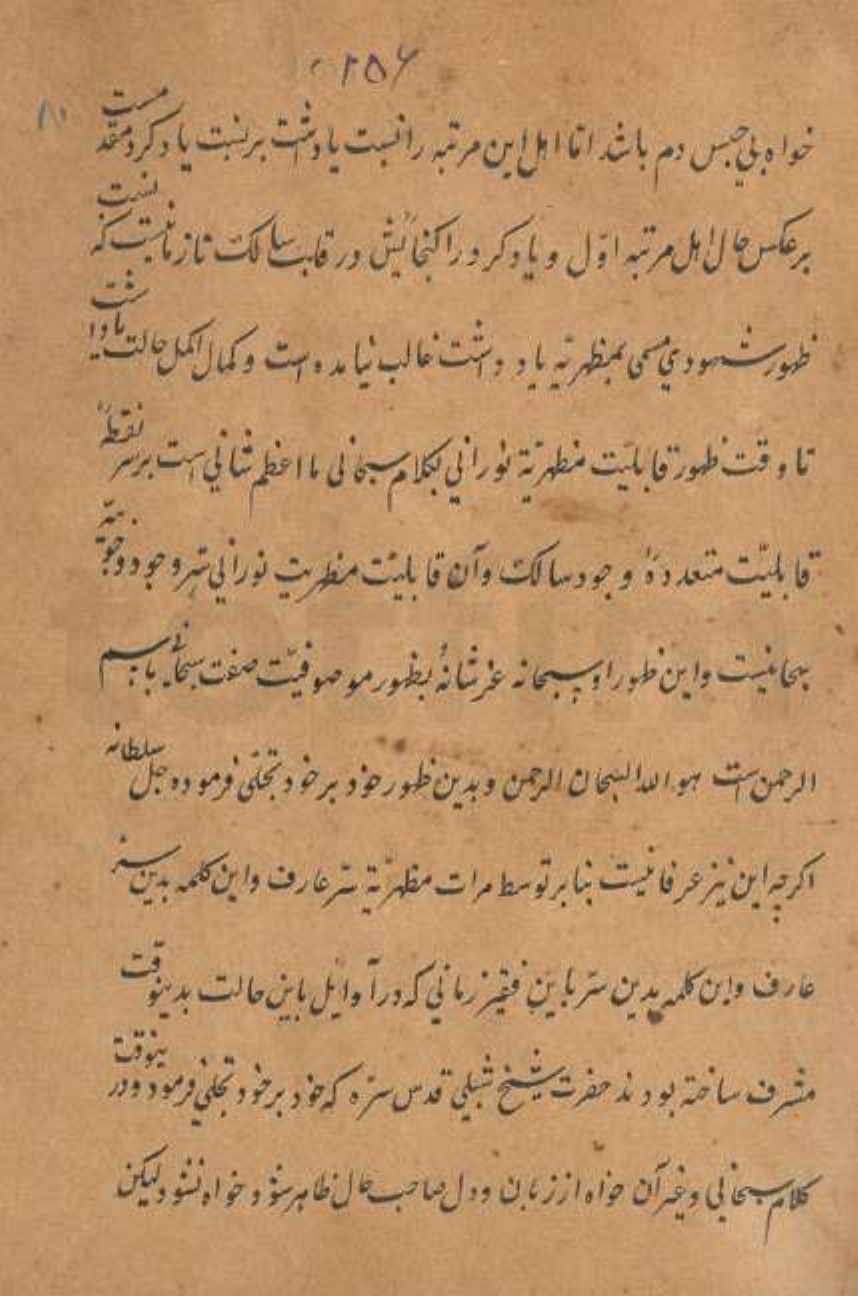 ۲۵۶
خواه بی حبس دم باشد اما اهل این مرتبه را نسبت یادداشت بر نسبت یاد کرد مقدمست
بر عکس حال اهل مرتبه اول و یاد کرد را گنجائیش در قابلیت سالک تا زمانیست که نسبت
ظهور شهودی مسمی بمظهریّه یاد داشت غالب نیامده است و کمال اکمل حالت یادداشت
تا وقت ظهور قابلیّت مظهریّة نورانی بکلام سبحانی ما اعظم شانی است بر سر نقطهٔ
قابلیّت متعددهٔ وجود سالک وآن قابلیّت مظهریت نورانی سّر وجود وجوبیّه
سبحانیست واین ظهور او سبحانه عز شانهُ بظهور موصوفیّت صفت سبحانی باسم
الرحمن است هو الله السبحان الرحمن و بدین ظهور خود بر خود تجلّی فرموده جل سلطانه
اگرچه این نیز عرفانیست بنابر توسط مرات مظهریّة سّر عارف واین کلمه بدین سّر
عارف واین کلمه بدین سّر باین فقیر زمانی که در آوائل باین حالت بدینوقت
مشرف ساخته بودند حضرت شیخ شبلی قدس سّره که خود بر خود تجلی فرمود ودر ینوقت
کلام سبحانی وغیر آن خواه از زبان ودل صاحب حال ظاهر شود خواه نشود لیکن